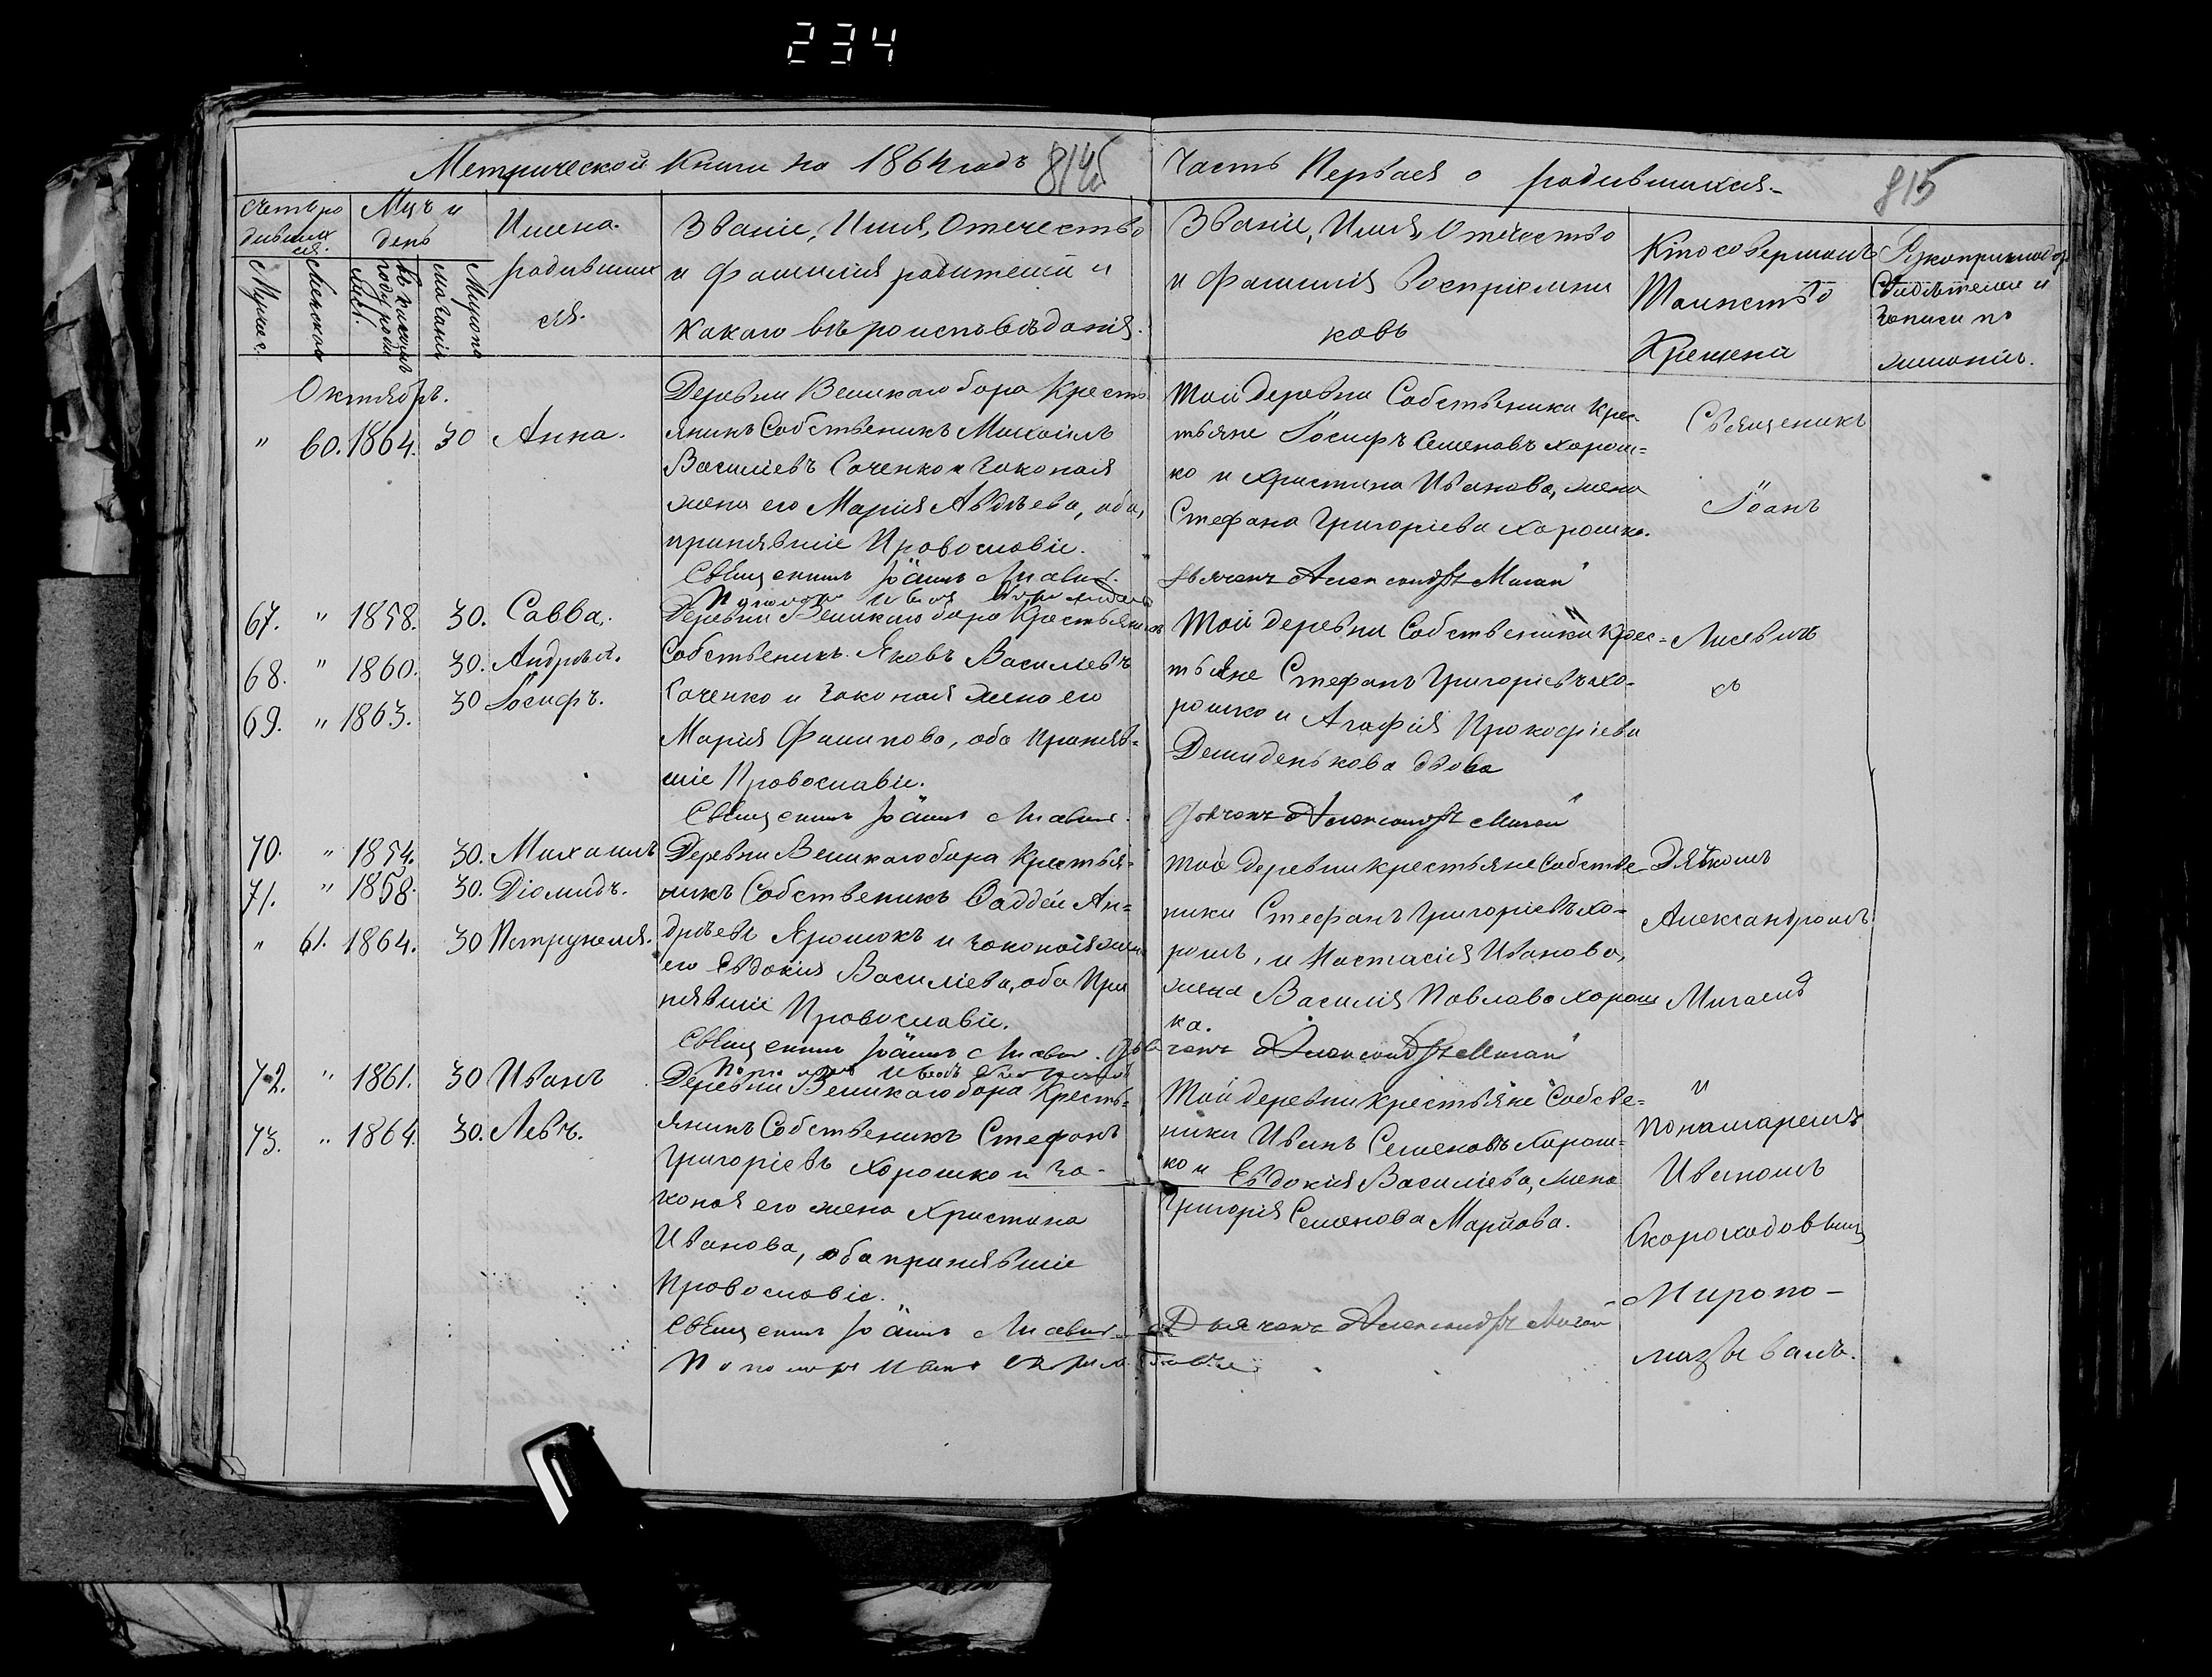 234
Метрической Книги на 1864 годъ
814
Часть Первая о родившихся.
815
Счетъ ро
дивших
ся.
Муже.
Женска
Мцъ и
день
Миропо
мазанія
Имена.
родивших
ся.
Званіе, Имя, Отечество
и Фамилія родителей и
какаго вѣроисповѣданія.
Званіе, Имя, Отечество
и Фамилія Воспріемни
ковъ
Кто совершалъ
Таинство
Крещенія
Рукоприкладс
Свидѣтелей и
записи по
желанію.
Октябрь.
" 60. 1864. 30 Анна.
Деревни Великаго бора Кресть
янинъ Собственикъ Михаилъ
Василіевъ Саченко и законая
жена его Марія Авдѣева, оба,
принявшіе Провославіе.
Священникъ Іоаннъ
Той Деревни Собственики Крес-
тьяне Іосифъ Семеновъ Хорош=
ко и Христина Иванова, жена
Стефана Григоріева Хорошко.
Дьячекъ Александръ Мигай
Священикъ
Іоанъ
67. " 1858. 30. Савва.
68. " 1860. 30. Андрей.
69. " 1863. 30 Іосифъ.
Пономарь Иванъ
Деревни Великаго бора Крестьянинъ
Собственикъ Яковъ Василіевъ
Саченко и законая жена его
Марія Филипова, оба Приняв=
шіе Провославіе.
Священникъ Іоаннъ
Той деревни Собственики Крес=
тьяне Стефанъ Григоріевъ Хо-
рошко и Агафія Прокофіева
Демиденькова вдова
Дьячекъ Александръ Мигай
Лисевичъ
съ
70. " 1854. 30. Михаилъ
71. " 1858. 30. Діомидъ.
" 61. 1864. 30 Петрунеля.
Деревни Великаго бора Крестья=
никъ Собственикъ Фаддей Ан=
дрѣевъ Ярошокъ и законая жена
его Евдокія Василіева, оба При
нявшіе Провославіе.
Священникъ Іоаннъ
Той Деревни крестьяне Собстве
ники Стефанъ Григоріевъ Хо-
рошъ, и Настасія Иванова,
жена Василія Павлова Хорош
ка.
Дьячекъ Александръ Мигай
Дячкомъ
Александромъ
Мигаемъ
72. " 1861. 30 Иванъ
73. " 1864. 30. Левъ.
Пономарь Иванъ
Деревни Великаго бора Кресть=
янинъ Собственикъ Стефанъ
Григоріевъ Хорошко и за-
коная его жена Христина
Иванова, оба принявшіе
Провославіе.
Священникъ Іоаннъ
Пономарь Иванъ
Той деревни крестьяне Собстве=
ники Иванъ Семеновъ Хорош=
ко и Евдокія Василіева, жена
Григорія Семенова Марцова.
Дьячекъ Александръ Мигай
и
понамаремъ
Иваномъ
Скороходовымъ
Миропо-
мазывалъ.